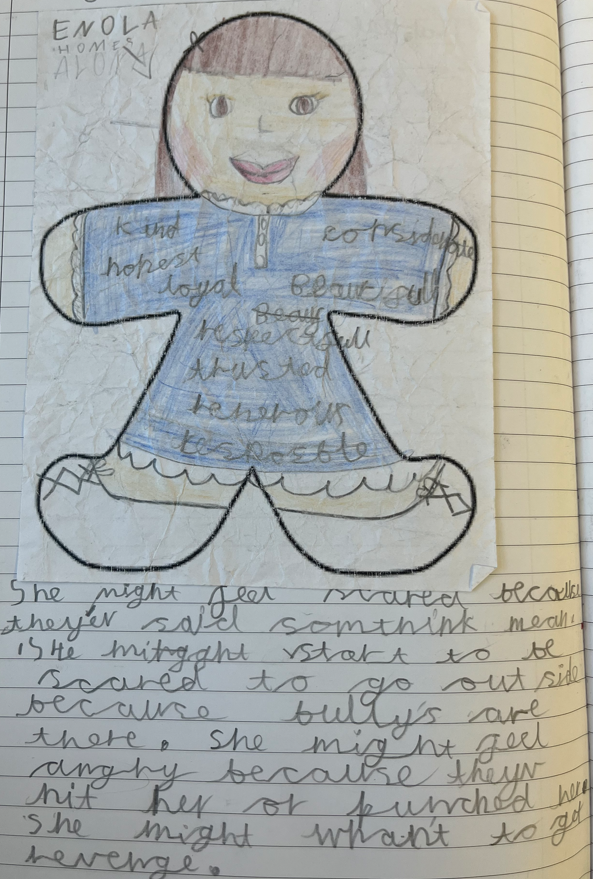 ENOLA
HOMES
ALONA
kind
considerate
honest
loyal
Beautifull
Beauy
respectfull
thusted
henerous
She might feel scared because
they'er said somthink mean.
She mitgght start to be
scared to go outside
because bully's are
there. She might feel
anghy because theyr
hit her or punched her
She might whant to get
revenge.